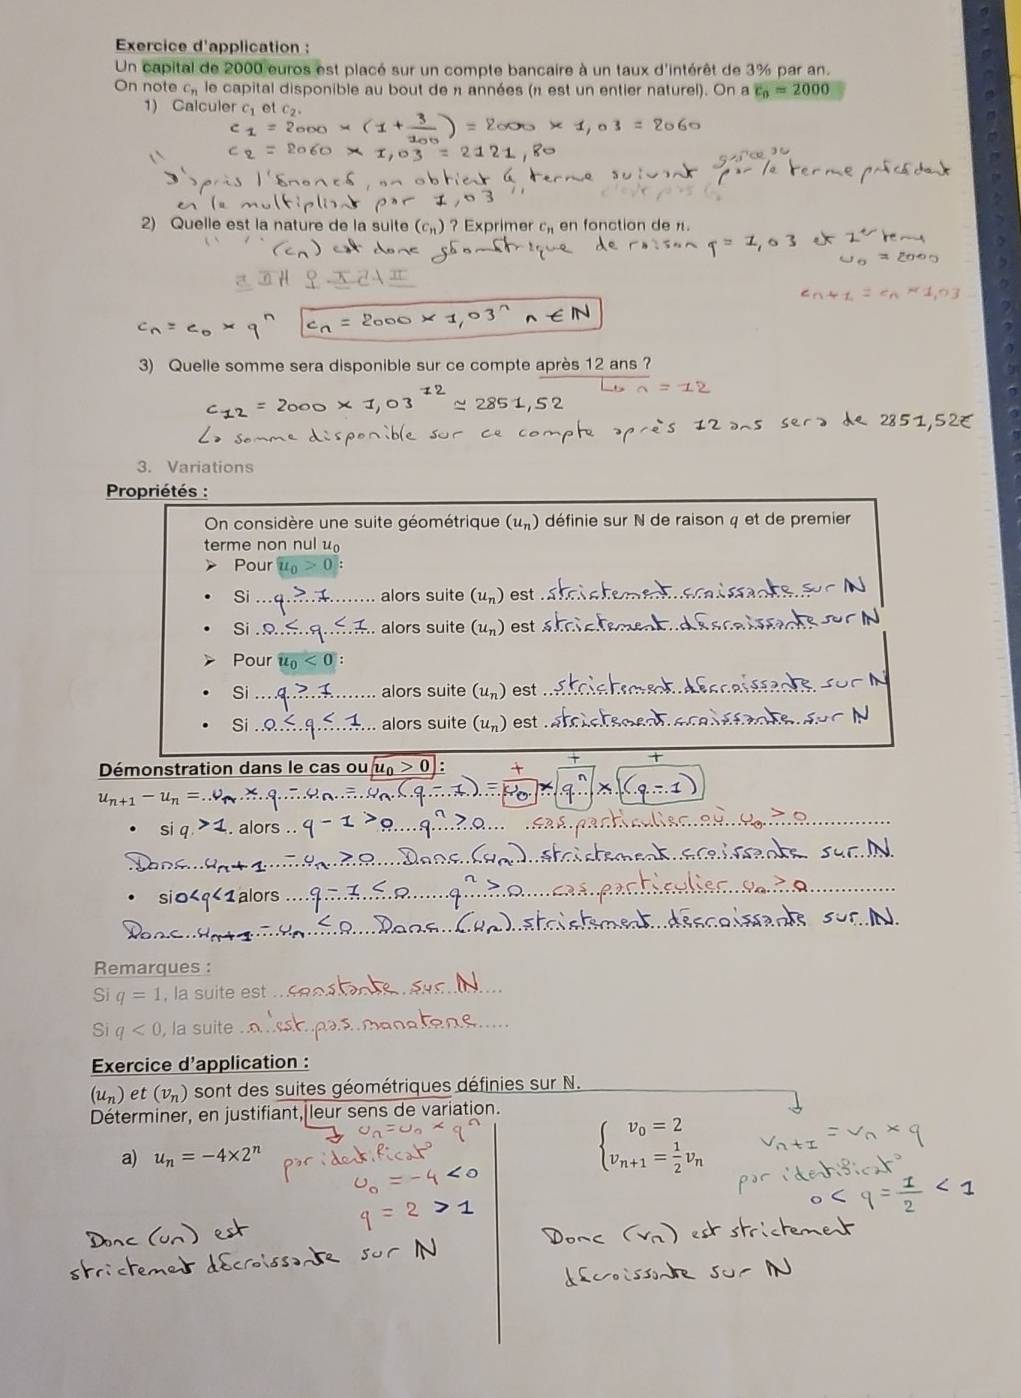 Exercice d'application :
Un capital de 2000 euros est placé sur un compte bancaire à un taux d'intérêt de 3% par an.
On note cₙ le capital disponible au bout de n années (n est un entier naturel). On a c₀ = 2000
1) Calculer c₁ et c₂.
c₁ = 2000 × (1 + 3/100) = 2000 × 1,03 = 2060
c₂ = 2060 × 1,03 = 2121,80
D'après l'énoncé, on obtient le terme suivant par le terme précédent
en le multipliant par 1,03 "
2) Quelle est la nature de la suite (cₙ) ? Exprimer cₙ en fonction de n.
(cₙ) est donc géométrique de raison q = 1,03 et 1er terme
u₀ = 2000
cₙ₊₁ = cₙ × 1,03
cₙ = c₀ × qⁿ cₙ = 2000 × 1,03ⁿ n ∈ ℕ
3) Quelle somme sera disponible sur ce compte après 12 ans ?
↳ n = 12
c₁₂ = 2000 × 1,03¹² ≃ 2851,52
La somme disponible sur ce compte après 12 ans sera de 2851,52€
3. Variations
Propriétés :
On considère une suite géométrique (uₙ) définie sur ℕ de raison q et de premier
terme non nul u₀
➤ Pour u₀ > 0 :
• Si ...q > 1... alors suite (uₙ) est strictement croissante sur ℕ
• Si 0 < q < 1 alors suite (uₙ) est strictement décroissante sur ℕ
➤ Pour u₀ < 0 :
• Si ...q > 1... alors suite (uₙ) est strictement décroissante sur ℕ
• Si 0 < q < 1 alors suite (uₙ) est strictement croissante sur ℕ
Démonstration dans le cas ou u₀ > 0 : + + +
uₙ₊₁ − uₙ = uₙ × q − uₙ = uₙ (q − 1) = u₀ × qⁿ × (q − 1)
• si q > 1 alors q − 1 > 0 qⁿ > 0 cas particulier où u₀ > 0
Donc uₙ₊₁ − uₙ > 0 Donc (uₙ) strictement croissante sur ℕ.
• si 0<q<1 alors q − 1 < 0 qⁿ > 0 cas particulier u₀ > 0
Donc uₙ₊₁ − uₙ < 0 Donc (uₙ) strictement décroissante sur ℕ.
Remarques :
Si q = 1, la suite est constante sur ℕ
Si q < 0, la suite n'est pas monotone
Exercice d'application :
(uₙ) et (vₙ) sont des suites géométriques définies sur ℕ.
Déterminer, en justifiant, leur sens de variation.
uₙ = u₀ × qⁿ
a) uₙ = −4×2ⁿ par identificat°
u₀ = −4 < 0
q = 2 > 1
Donc (uₙ) est
strictement décroissante sur ℕ
v₀ = 2
vₙ₊₁ = 1/2 vₙ
vₙ₊₁ = vₙ × q
par identificat°
0 < q = 1/2 < 1
Donc (vₙ) est strictement
décroissante sur ℕ